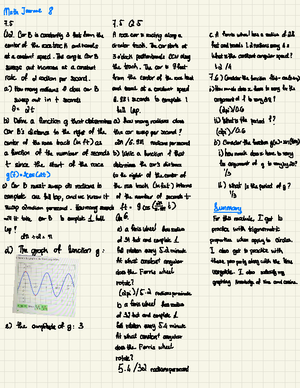 Math Journal 8
7.5
Q2) Car B is constantly 3 feet from the
center of the racetrack and travels
at a constant speed. The angle Car B
sweeps out increases at a constant
rate of 2 radian per second.
a) How many radians θ does car B
sweep out in t seconds
θ = 2t
b) Define a function g that determines
Car B's distance to the right of the
center of the race track (in ft) as
a function of the number of seconds
t since the start of the race
g(t) = 3cos(2t)
c) Car B must sweep 2π radians to
complete one full lap, and we know it
sweep radian per second. How many seconds
will it take, car B to complete 1 full
lap?
2π ÷ 2 = π
d) The graph of function g:
e) the amplitude of g: 3
7.5 Q5
A race car is racing along a
circular track. The car starts at
3 o'clock position and CCW along
the track. The car is 9 feet
from the center of the race track
and travels at a constant speed
seconds to complete 1
full lap.
a) How many radians does
the car sweep per second?
radians per second
b) Write a function f that
determine the car's distance
to the right of the center of
the race track (in feet) in terms
of the number of seconds t
Q6
a) a Ferris wheel has radius
of 32 feet and complete 1
full rotation every 5.2 minute
At what constant angular
does the Ferris wheel
rotate?
(2pi)/5.2 radians per minute
b) a Ferris wheel has radius
of 32 feet and complete 1
full rotation every 5.4 minute
At what constant angular
does the Ferris wheel
rotate?
c) A Ferris wheel has a radius of 28
feet and travels 1.2 radians every 4 s
What is the constant angular speed?
1.2 /4
7.6) Consider the function
i) How much does x have to vary to the
argument of f to vary 2π?
(2pi)/0.6
ii) What is the period f?
(2pi)/0.6
b) Consider the function
i) how much does x have to vary
to argument of g to vary by 2π?
1/3
ii) What is the period of g?
1/3
Summary
For this module, I got to
practice with trigonometric
proportion when applying to circles.
I also got to practice with
those, primarily along with the time
variable. I also solidify my
graphing knowledge of sine and cosine.